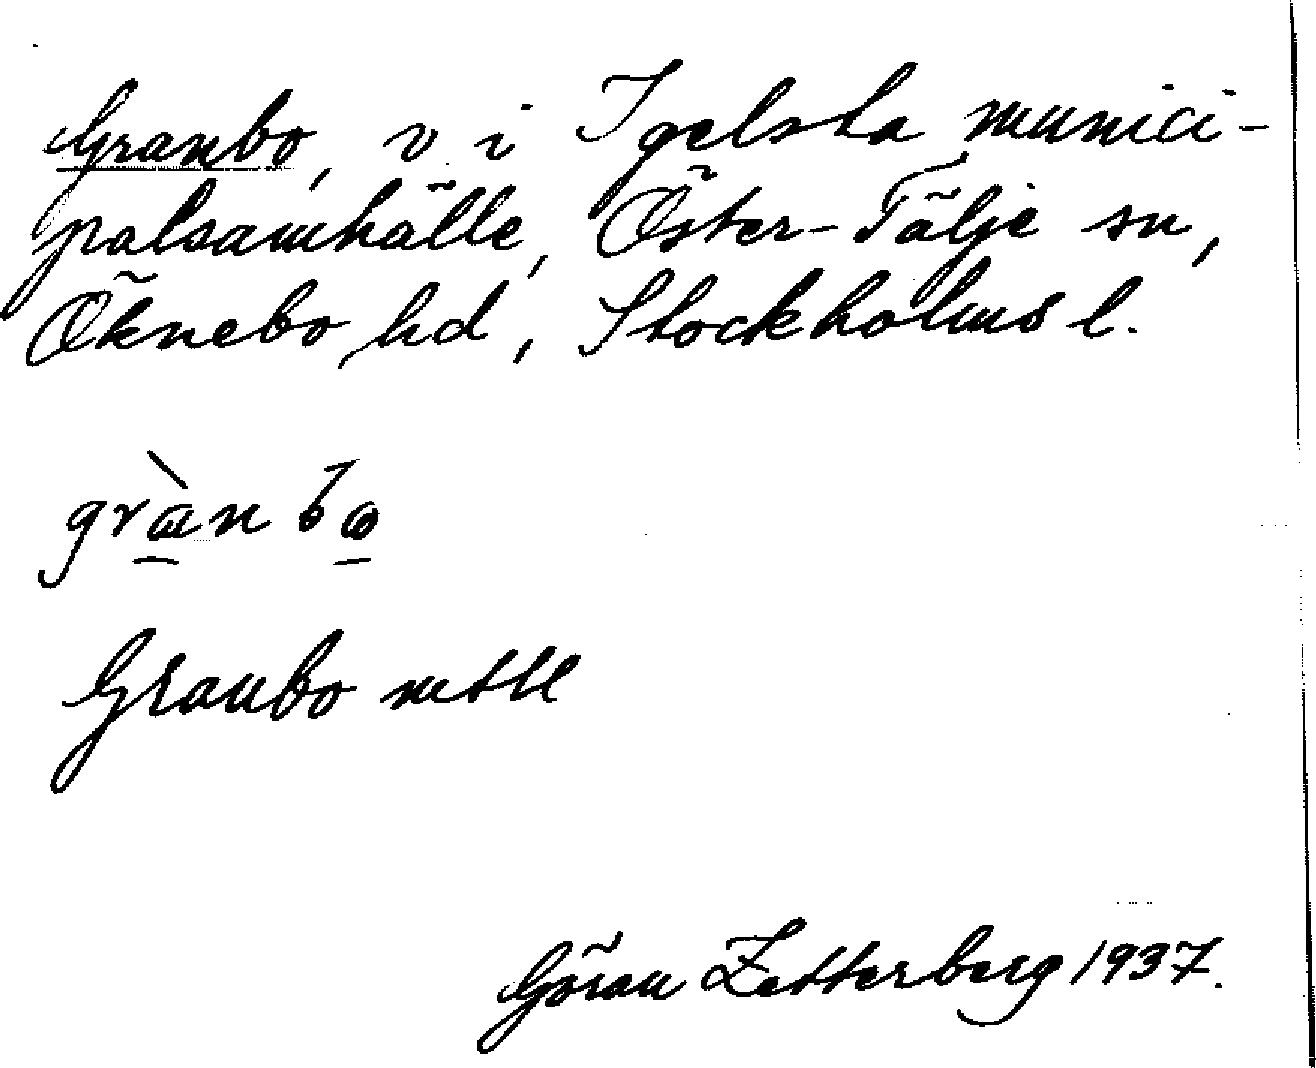 Granbo, v i Igelsta munici-
palsamhälle, Öster-Tälje sn,
Öknebo hd, Stockholms l.
Granbo mtll
Göran Zetterberg 1937.